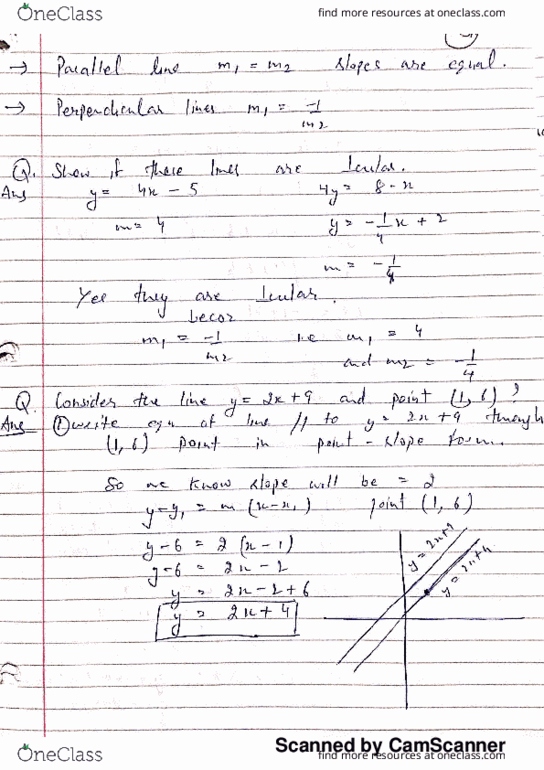 OneClass
find more resources at oneclass.com
→ Parallel line m₁ = m₂ slopes are equal.
→ Perpendicular lines m₁ = -1/m2
Q. Show if these lines are ⊥cular.
Ans y = 4x - 5 4y = 8 - x
m = 4 y = -1/4 x + 2
m = -1/4
Yes they are ⊥cular.
becoz
m₁ = -1/m2 i.e m₁ = 4
and m2 = -1/4
Q. Consider the line y = 2x + 9 and point (1, 6) ?
Ans ① write eqn of line // to y = 2x + 9 through
(1, 6) point in point - slope form.
So we know slope will be = 2
y - y₁ = m (x - x₁) point (1, 6)
y - 6 = 2 (x - 1)
y - 6 = 2x - 2
y = 2x - 2 + 6
y = 2x + 4
y = 2x+9
y = 2x+4
Scanned by CamScanner
OneClass
find more resources at oneclass.com